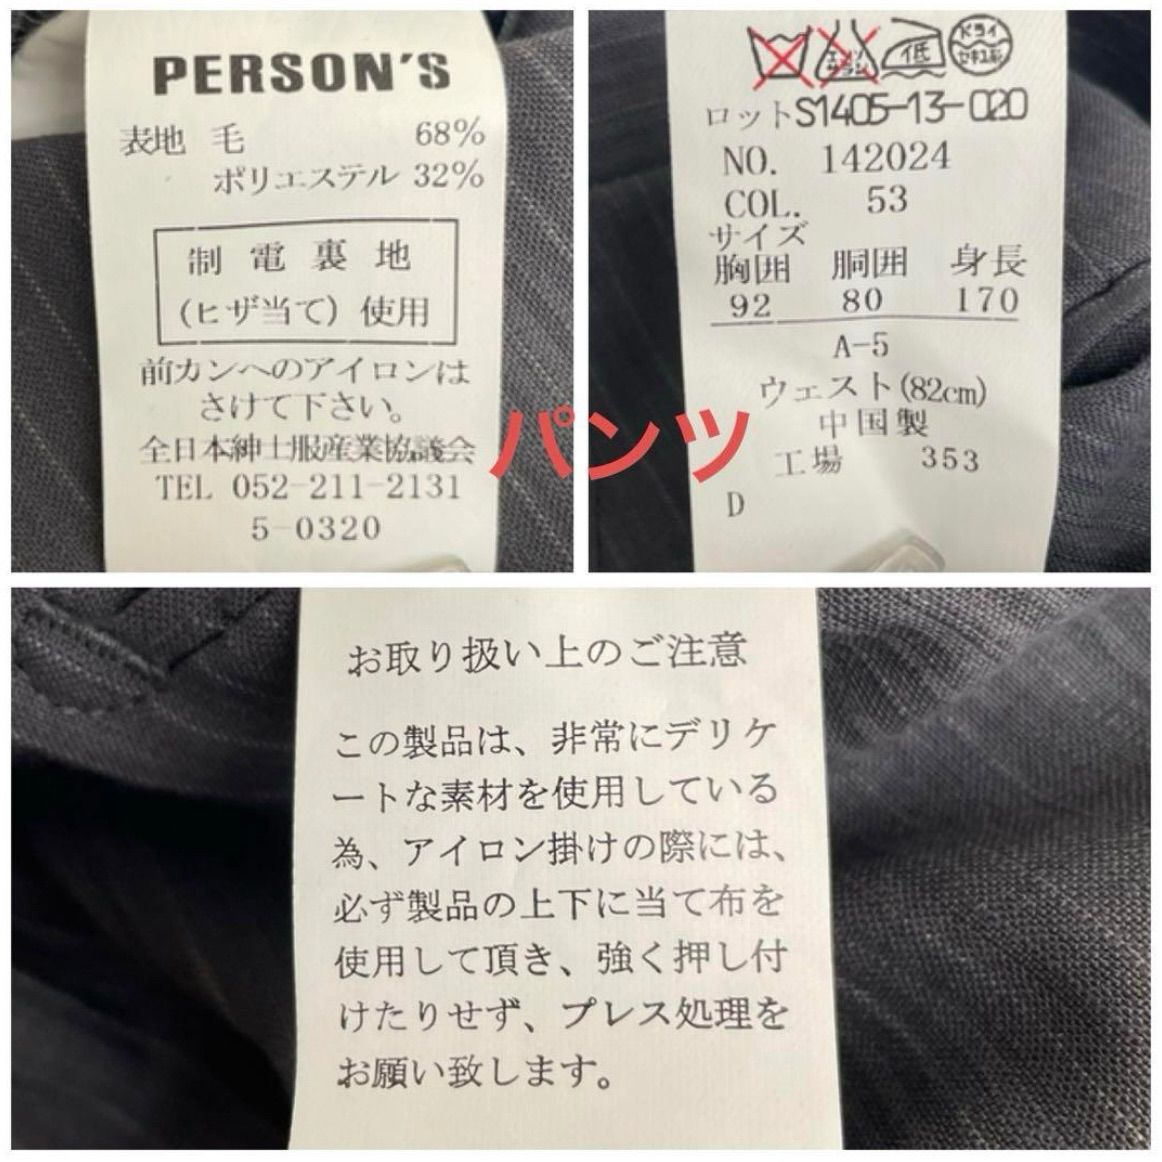 PERSON'S
表地 毛 68%
ポリエステル 32%
制電裏地
(ヒザ当て)使用
前カンへのアイロンは
さけて下さい。
全日本紳士服産業協議会
TEL 052-211-2131
5-0320
低
ドライ
セキユ系
ロットS1405-13-020
NO. 142024
COL. 53
サイズ
胸囲 胴囲 身長
92 80 170
A-5
ウェスト(82cm)
中国製
工場 353
D
パンツ
お取り扱い上のご注意
この製品は、非常にデリケ
ートな素材を使用している
為、アイロン掛けの際には、
必ず製品の上下に当て布を
使用して頂き、強く押し付
けたりせず、プレス処理を
お願い致します。